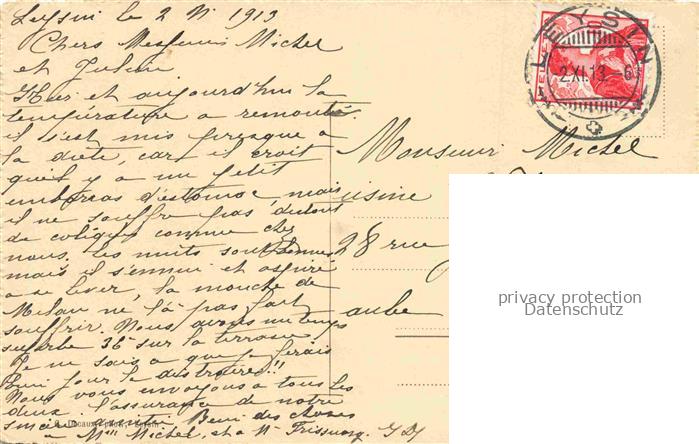 Leysin le 2 XI 1913
Chers Messieurs Michel
et Julien
Hier et aujourd'hui la
température a remonté.
il s'est mis presque a
la diète, car il croit
qu'il y a un petit
embarras d'estomac mais
il ne souffre pas du tout
de coliques comme chez
nous. les nuits sont bonnes
mais il s'ennuie et aspire
a se lever, la mouche de
Milan ne l'a pas fait
souffrir. Nous avons un temps
superbe 36° sur la terrasse
Je ne sais a que je ferais
pour le distraire!!
Nous vous envoyons a tous les
deux l'assurance de notre
sincère amitié. Bien des choses
a Mme Michel, et a Mr
LEYSIN
2.XI.13-6
Monsieur Michel
usine
28 rue
aube
privacy protection
Datenschutz